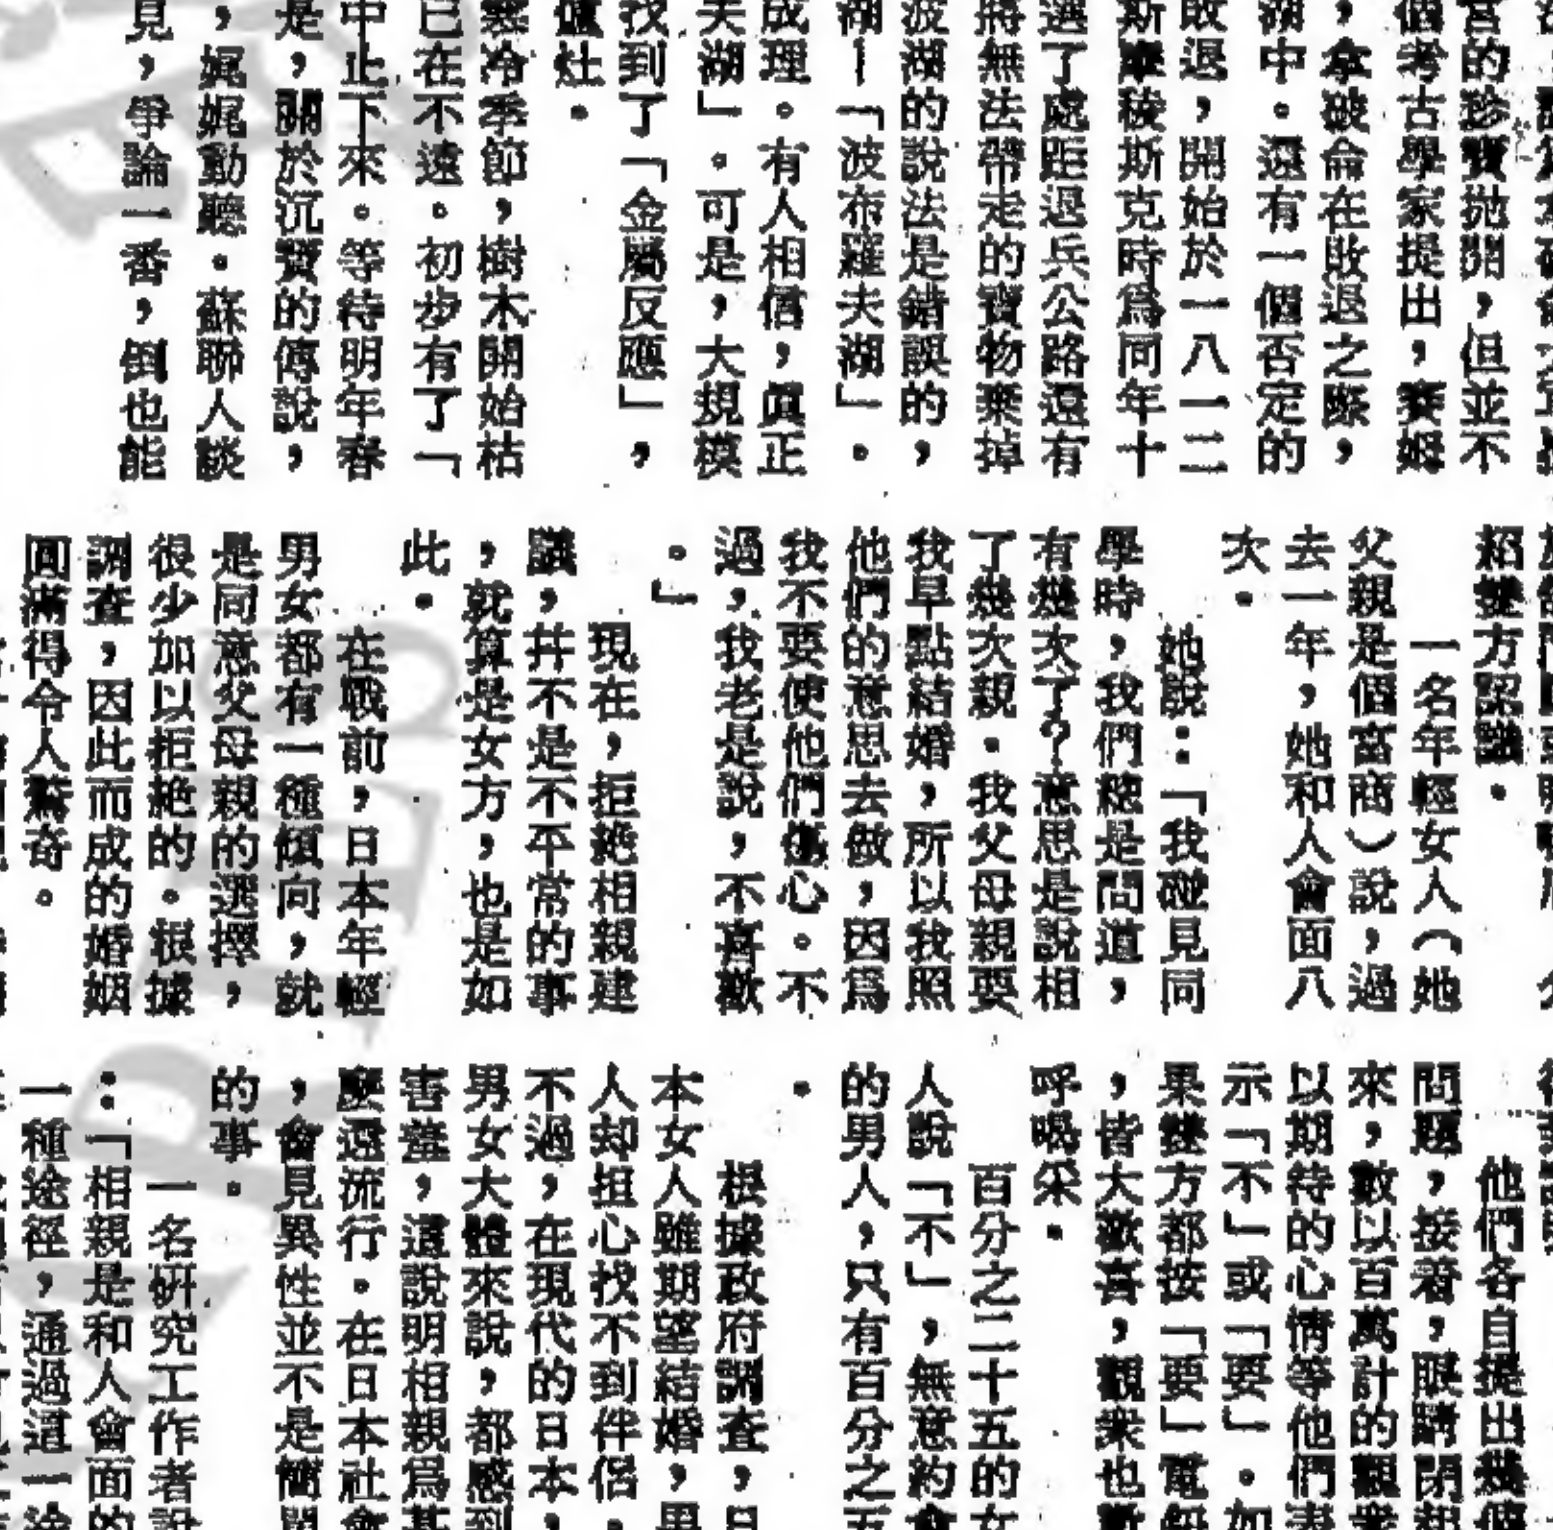 宮的珍寶拋開，但並不
個考古學家提出，賽姆
，拿破侖在敗退之際，
湖中。還有一個否定的
敗退，開始於一八一二
斯摩稜斯克時爲同年十
選了處距退兵公路還有
將無法帶走的寶物棄掉
波湖的說法是錯誤的，
湖—「波布羅夫湖」。
成理。有人相信，眞正
夫湖」。可是，大規模
找到了「金屬反應」，
爐灶。
寒冷季節，樹木開始枯
已在不遠。初步有了「
中止下來。等待明年春
是，關於沉寶的傳說，
，娓娓動聽。蘇聯人談
見，爭論一番，倒也能
紹雙方認識。
一名年輕女人（她
父親是個富商）說，過
去一年，她和人會面八
次。
她說：「我碰見同
學時，我們總是問道，
有幾次了？意思是說相
了幾次親。我父母親要
我早點結婚，所以我照
他們的意思去做，因爲
我不要使他們傷心。不
過，我老是說，不喜歡
。」
現在，拒絶相親建
議，幷不是不平常的事
，就算是女方，也是如
此。
在戰前，日本年輕
男女都有一種傾向，就
是同意父母親的選擇，
很少加以拒絶的。根據
調査，因此而成的婚姻
圓滿得令人驚奇。
他們各自提出幾個
問題，接着，眼睛閉起
來，數以百萬計的觀衆
以期待的心情等他們表
示「不」或「要」。如
果雙方都按「要」電鈕
，皆大歡喜，觀衆也歡
呼喝采。
百分之二十五的女
人說「不」，無意約會
的男人，只有百分之五
。
根據政府調査，日
本女人雖期望結婚，男
人却担心找不到伴侶。
不過，在現代的日本，
男女大體來說，都感到
害羞，這說明相親爲甚
麼還流行。在日本社會
，會見異性並不是簡單
的事。
一名硏究工作者說
：「相親是和人會面的
一種途徑，通過這一途